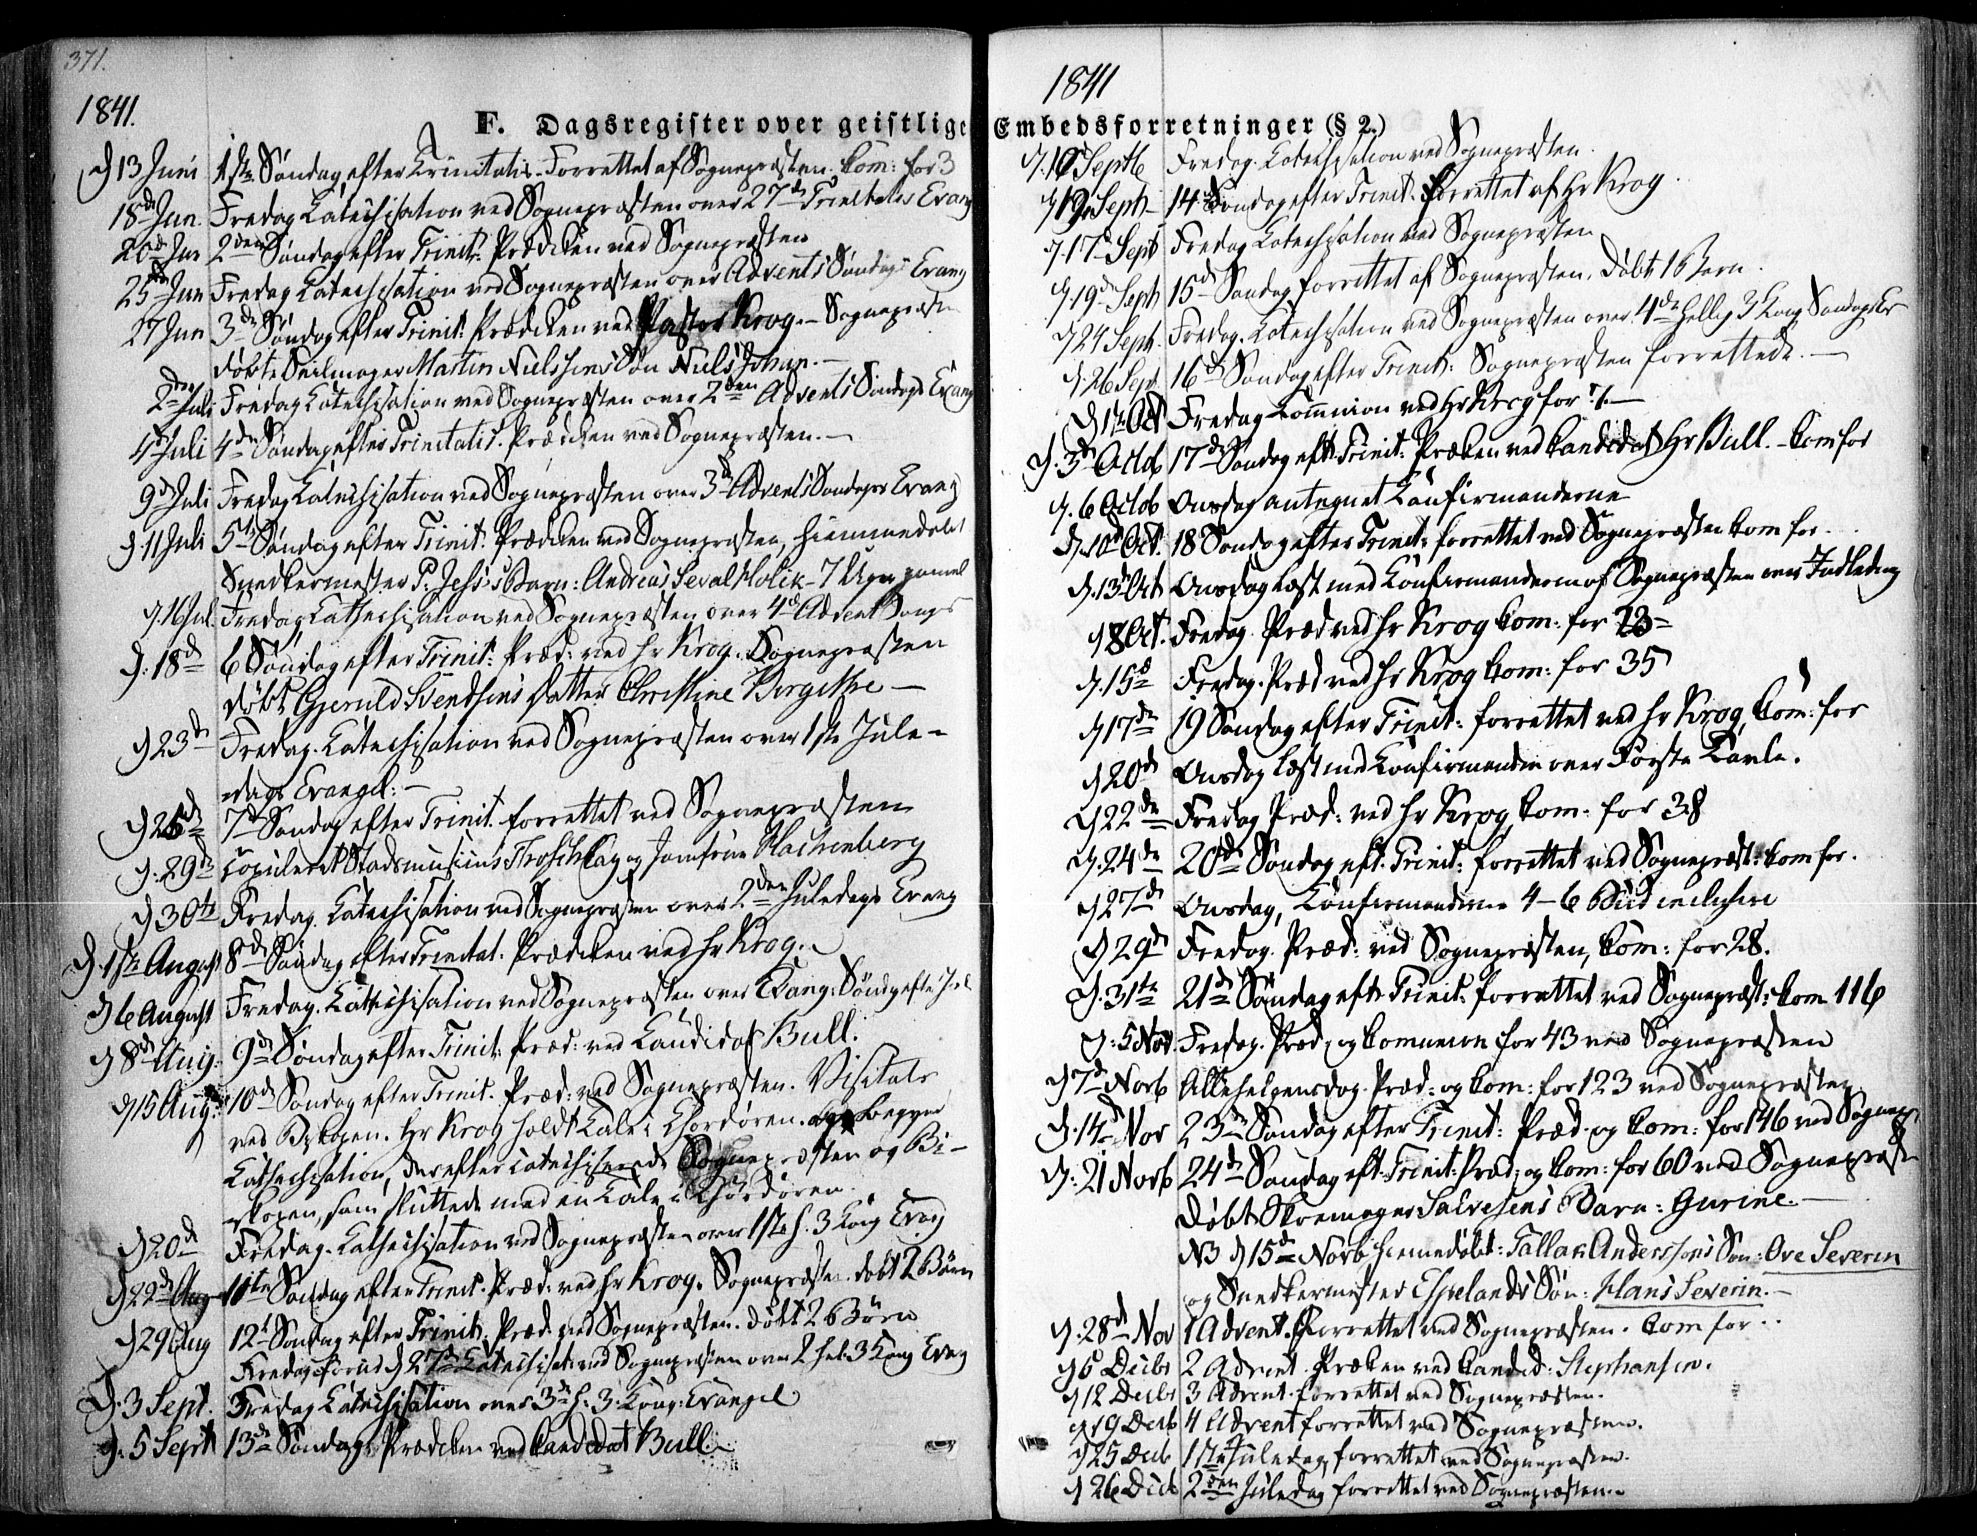 371.
1841.
F. Dagsregister over geistlige
D 13 Juni 1ste Søndag efter Trinitatis. Forrettet af Sognepræsten. Com: for 3
18de Jun. Fredag Catechisation ved Sognepræsten over 27de Trinitatis Evang
20de Jun 2den Søndag efter Trinit: Prædiken ved Sognepræsten
25de Jun Fredag Catechisation ved Sognepræsten over Advents Søndags Evang
27 Jun 3de Søndag efter Trinit: Prædiken ved Pastor Krog. – Sognepræsten
døbte Seilmager Martin Nielssens Søn Niels Johan. —
2den Juli Fredag Catechisation ved Sognepræsten over 2den Advents Søndags Evang
4de Juli 4de Søndag efter Trinitatis. Prædiken ved Sognepræsten. —
9de Juli Fredag Catechisation ved Sognepræsten over 3de Advents Søndags Evang
D. 11 Juli 5te Søndag efter Trinit: Prædiken ved Sognepræsten, hiemmedøbt
Snedkermester P. Jess's Barn: Andreas 7 Uger gamel
D. 16 Jul. Fredag Catechisation ved Sognepræsten over 4de Advent Sønds
D. 18de 6 Søndag efter Trinit: Præd: ved Hr Krog. Sognepræsten
døbt Gjeruld Svendsens Datter Christine Birgithe —
D 23de Fredag. Catechisation ved Sognepræsten over 1ste Jule-
-dags Evangel: —
D 25de 7de Søndag efter Trinit. forrettet ved Sognepræsten
D. 29de copuleret Stadsmusicus og Jomfrue Hachenberg
D 30te Fredag. Catechisation ved Sognepræsten over 2den Juledags Evang
D. 1ste August 8de Søndag efter Trinitat. Prædiken ved Hr Krog. –
D 6 August Fredag. Catechisation ved Sognepræsten over Evang: Søndg efter Jul
D 8de Aug: 9de Søndag efter Trinit: Præd: ved Candidat Bull.
D 15 Aug: 10de Søndag efter Trinit. Præd: ved Sognepræsten. Visitats
ved Biskopen. Hr Krog holdt Tale i Chordøren. og begyndte
Catechisation, derefter catechiserede Sognepræsten og Bi-
-skopen, som sluttede med en Tale i Chordøren.
D 20de Fredag. Catechisation ved Sognepræsten over 1ste H. 3 Kong Evang
D 22de Aug 11te Søndag efter Trinit. Præd: ved Hr Krog. Sognepræsten døbt 2 Børn
D 29 Aug 12te Søndag efter Trinit: Præd. ved Sognepræsten. døbt 2 Børn
Fredag forud D 27de Catechisat: ved Sognepræsten over 2 Hel: 3 Kong Evang
D. 3 Sept. Fredag Catechisation over 3de H: 3: Kong: Evangel
D. 5 Sept 13de Søndag. Prædiken ved Candidat Bull –
1841
Embedsforretninger (§ 2.)
D. 10 Septb Fredag. Catechisation ved Sognepræsten.
D 12. Septb 14de Søndag efter Trinit. forrettet af Hr Krog.
D. 17de Sept Fredag Catechisation ved Sognepræsten
D. 19de Septb 15de Søndag forrettet af Sognepræsten. Døbt 1 Barn.
D 24 Septb. Fredag. Catechisation ved Sognepræsten over 4de Hellig 3 Kong Søndags Ev
D. 26 Sept 16de Søndag efter Trinit: Sognepræsten forrettede. —
D 1te Oct Fredag Comunion ved Hr Krog for 7. —
D. 3de Octob 17de Søndag eft Trinit: Præken ved Candidat Hr Bull. – Com for
D. 6 Octob Onsdag antegnet Confirmanderne
D. 10de Oct. 18 Søndag efter Trinit: forrettet ved Sognepræsten Com for..
D. 13de Oct Onsdag læst med Confirmanderne af Sognepræsten over Indledng
D 8 Oct. Fredag. Præd ved Hr Krog Com: for 23 –
D. 15de Fredag. Præd ved Hr Krog Com: for 35
D 17de 19 Søndag efter Trinit: forrettet ved Hr Krog, Com: for
D 20de Onsdag læst med Confirmander over Første Tavle.
D 22de Fredag Præd: ved Hr Krog Com: for 38
D. 24de 20de Søndag eft: Trinit: forrettet ved Sognepræst: Com for.
D 27de Onsdag, Confirmanderne 4–6 Bud inclusive
D 29de Fredag. Præd: ved Sognepræsten, Com: for 28.
D. 31te 21de Søndag eft Trinit: forrettet ved Sognepræst: Com 116
D: 5 Nov. Fredag. Præd, og Comunion for 43 ved Sognepræsten
D 7de Novb Allehelgensdag. Præd: og Com: for 123 ved Sognepræsten
D. 14de Nov 23de Søndag efter Trinit: Præd. og Com: for 146 ved Sognepr.
D: 21 Novb 24de Søndag eft: Trinit: Præd: og Com: for 60 ved Sognepræst
Døbt Skomager Salvesens Barn: Gurine. —
NB D 15de Novb hiemmedøbt: Tallak Anderssons Søn: Ove Severin
og Snedkermester Espelands Søn: Hans Severin. –
D. 28de Nov 1 Advent. Forrettet ved Sognepræsten. Com for..
D 5 Decbr 2 Advent. Præken ved Candid: Stephansen.
D 12 Decbr 3 Advent. forrettet ved Sognepræsten.
D 19 Decb 4 Advent forrettet ved Sognepræsten.
D 25 Decb 1ste Juledag, forrettet ved Sognepræsten.
D 26 Decb 2den Juledag forrettet ved Sognepræsten. –